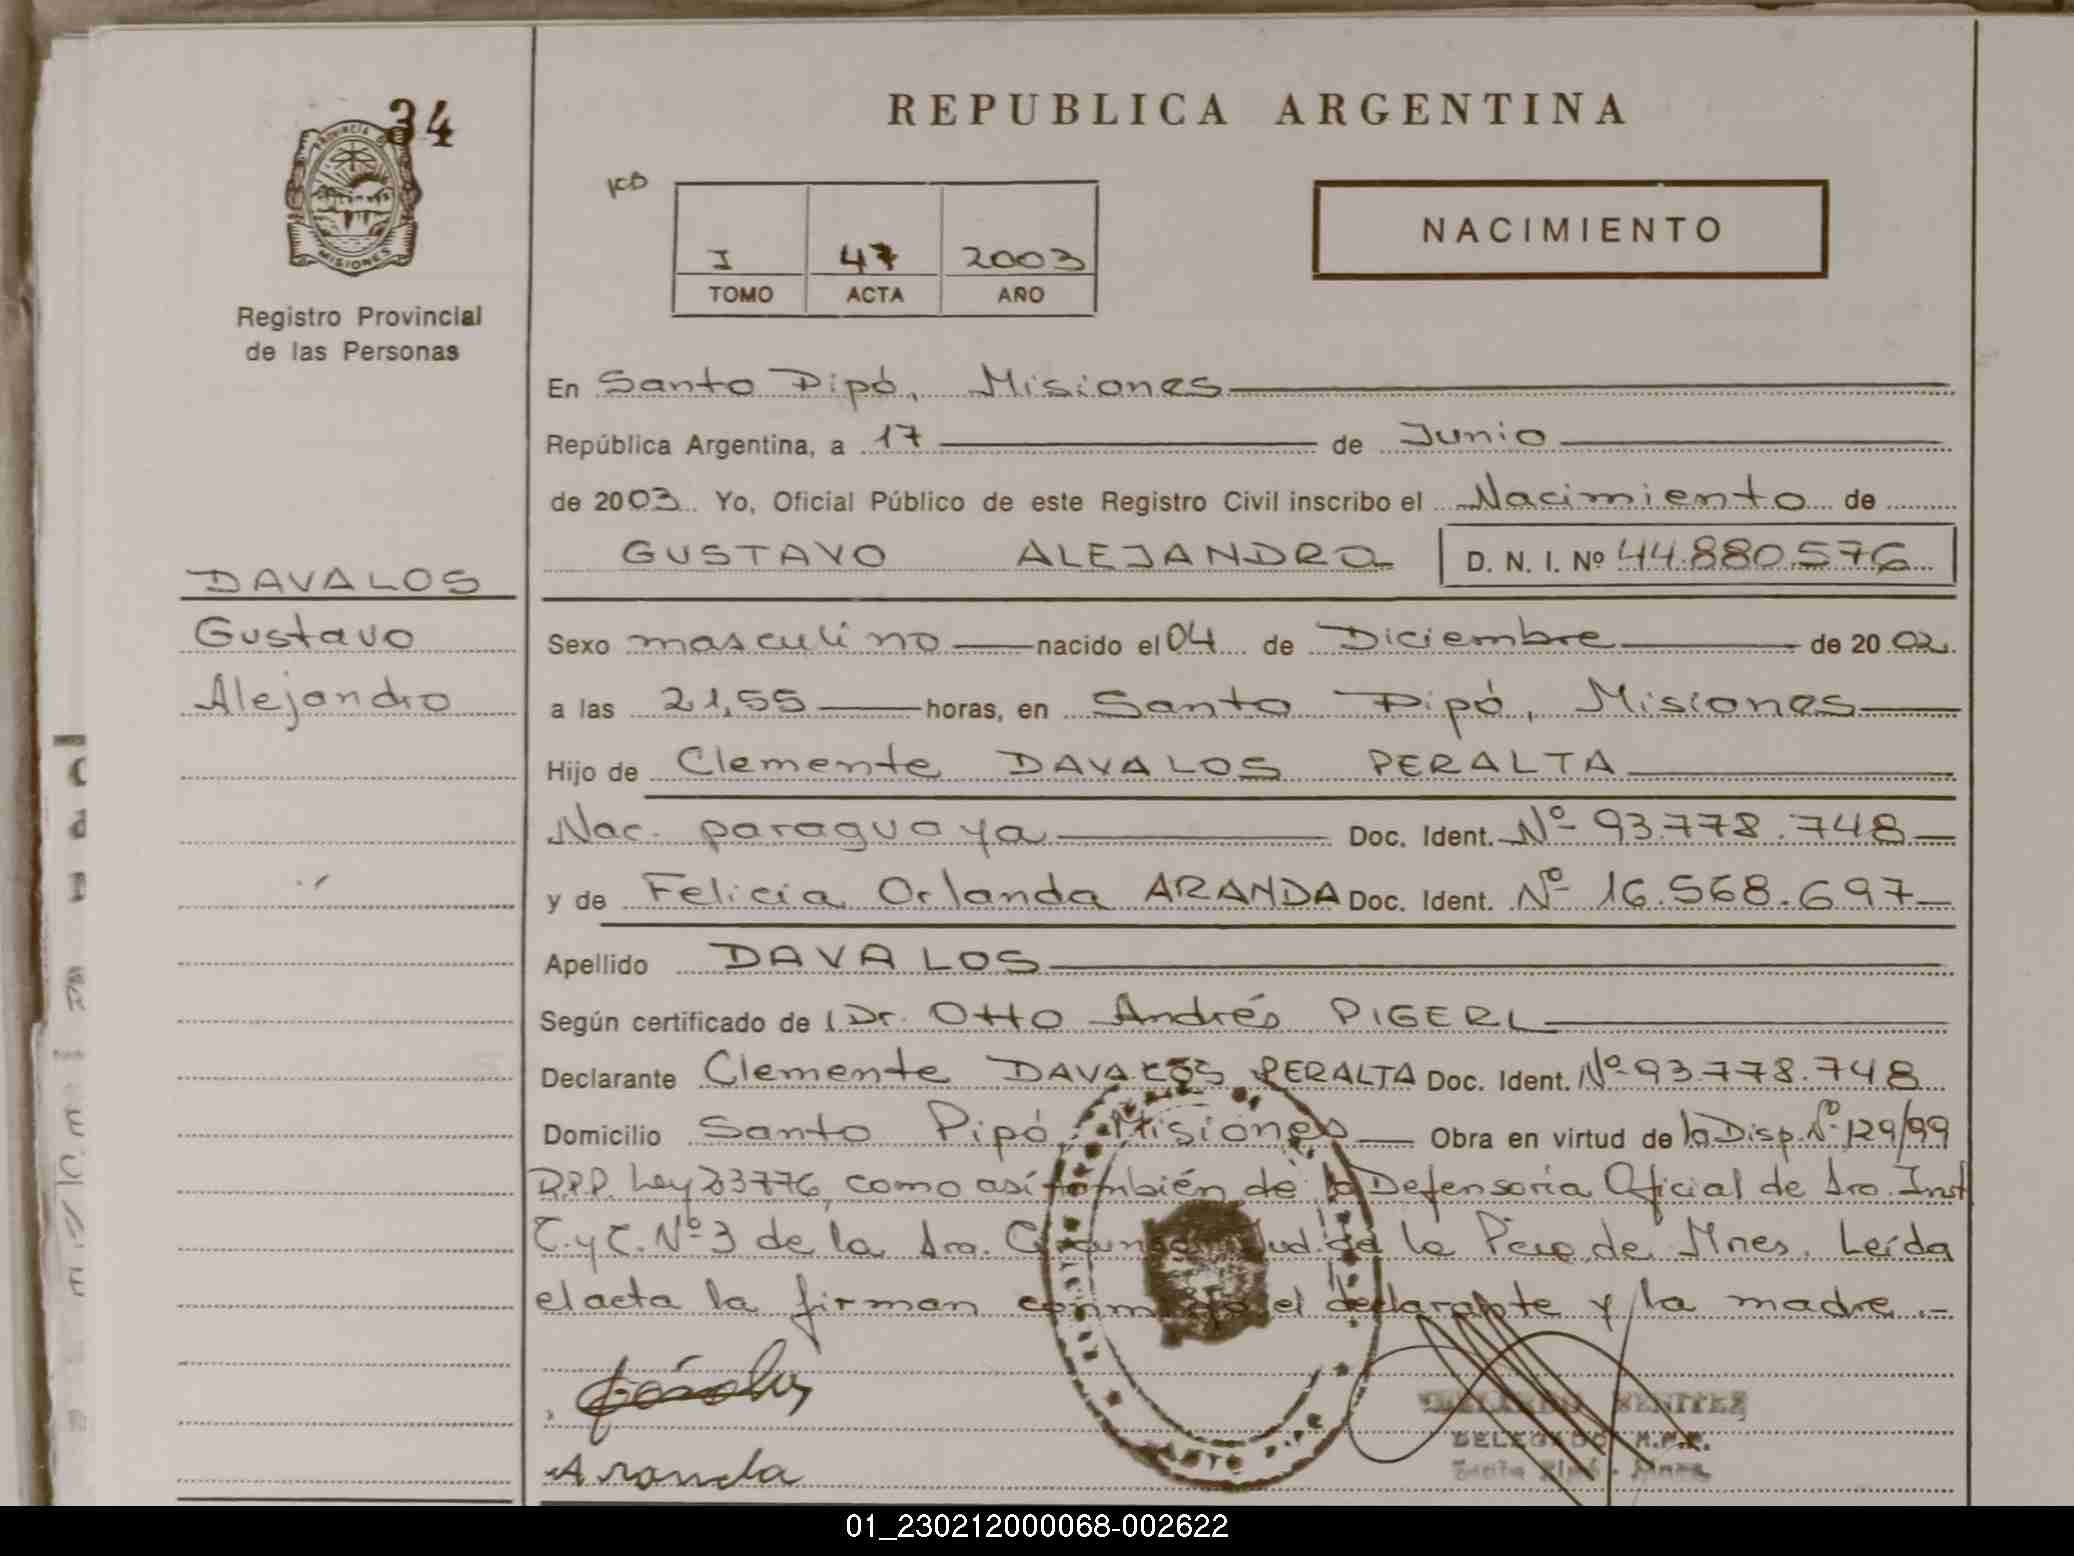 34
PROVINCIA
MISIONES
Registro Provincial
de las Personas
REPUBLICA ARGENTINA
I 47 2003
TOMO ACTA AÑO
NACIMIENTO
En Santo Pipó, Misiones
República Argentina, a 17 de Junio
de 2003 Yo, Oficial Público de este Registro Civil inscribo el Nacimiento de
GUSTAVO ALEJANDRO D. N. I. Nº 44.880.576
DAVALOS
Gustavo
Alejandro
Sexo masculino nacido el 04 de Diciembre de 2002.
a las 21,55 horas, en Santo Pipó, Misiones
Hijo de Clemente DAVALOS PERALTA
Nac. paraguaya Doc. Ident. Nº 93.778.748
y de Felicia Orlanda ARANDA Doc. Ident. Nº 16.568.697
Apellido DAVALOS
Según certificado de l Dr. Otto Andrés PIGERL
Declarante Clemente DAVALOS PERALTA Doc. Ident. Nº 93.778.748
Domicilio Santo Pipó, Misiones Obra en virtud de la Disp. Nº 129/99
R.P.P. Ley 23776, como así también de la Defensoría Oficial de 1ro. Inst
C. y C. Nº 3 de la 1ra. Circunsc. Jud. de la Pcia. de Mnes. Leída
el acta la firman conmigo el declarante y la madre.-
Aranda
BENITEZ
DELEGADO R.P.P.
Santo Pipó - Mnes
01_230212000068-002622